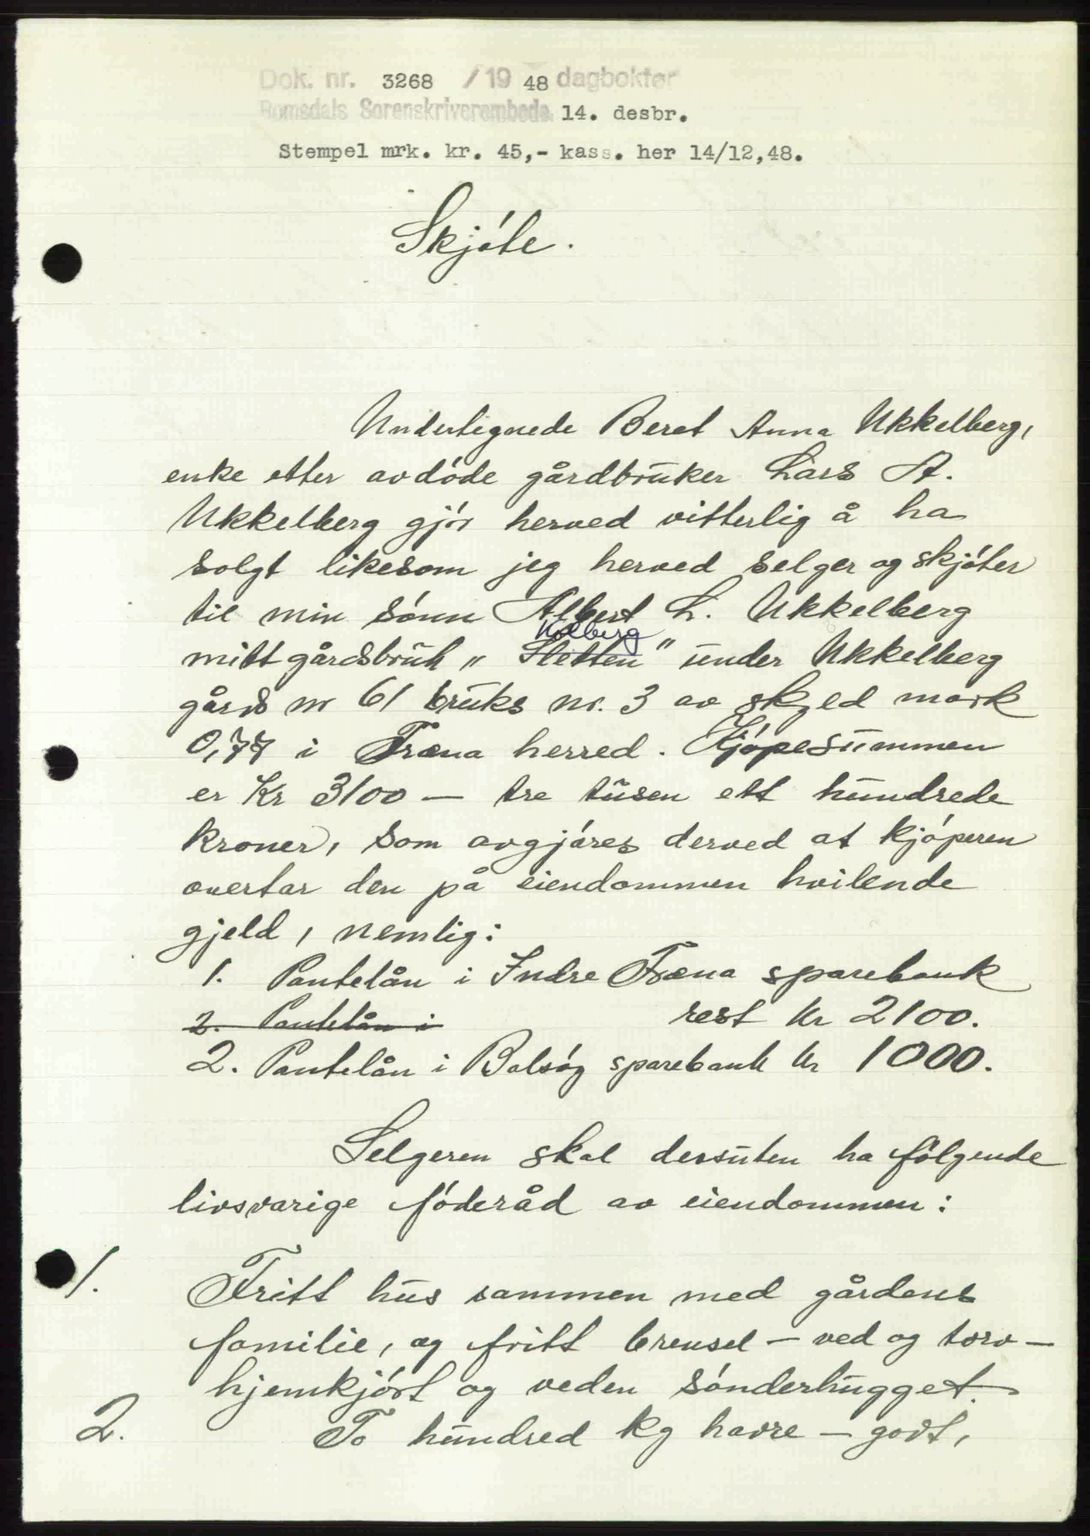 Dok. nr. 3268 / 19 48 dagboktør
Romsdals Sorenskriverembede 14. desbr.
Stempel mrk. kr. 45,- kass. her 14/12,48.
Skjöte.
Undertegnede Beret Anna Ukkelberg,
enke etter avdöde gårdbruker Lars A.
Ukkelberg gjör herved vitterlig å ha
solgt likesom jeg herved selger og skjöter
til min sönn Albert L. Ukkelberg
Kolberg
mitt gårdsbruk „Sletten" under Ukkelberg
gårds nr 61 bruks nr. 3 av skyld mark
0,77 i Fræna herred. Kjöpesummen
er Kr 3100 — tre tusen ett hundrede
kroner, som avgjöres derved at kjöperen
overtar den på eiendommen hvilende
gjeld, nemlig:
1. Pantelån i Indre Fræna sparebank
2. Pantelån i rest kr 2100.
2. Pantelån i Bolsöy sparebank kr 1000.
Selgeren skal dersuten ha fölgende
livsvarige föderåd av eiendommen:
1. Fritt hus sammen med gårdens
familie, og fritt brensel — ved og torv —
hjemkjört og veden sönderhugget.
2. To hundred kg havre — godt,